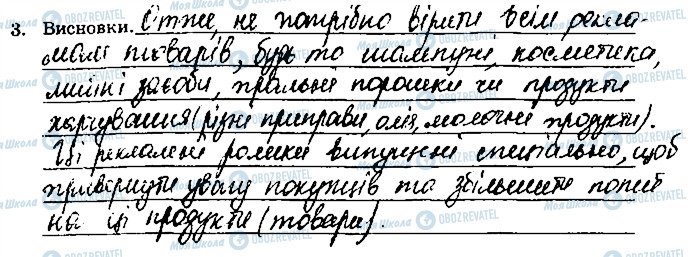 3. Висновки. Отже, не потрібно вірити всім рекла-
мам товарів, будь то шампуні, косметика,
миючі засоби, пральні порошки чи продукти
харчування (різні приправи, олія, молочні продукти).
Ці рекламні ролики випущені спеціально, щоб
привернути увагу покупців та збільшити попит
на ці продукти (товари).